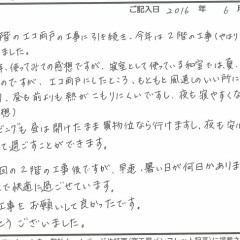 ご記入日 2016 年 6
階のエコ雨戸の工事に引き続き、今年は2階の工事(やはり
ました。
年、使ってみての感想ですが、寝室として使っている和室は、夏、
のですが、エコ雨戸にしたところ、もともと風通しのいい所に
、昼も前よりも熱がこもりにくいですし、夜も寝やすくな
想)
ビングも昼は開けたまま買物位なら行けますし、夜も安
て過ごすことができます。
回の2階の工事後ですが、早速、暑い日が何日かありま
で快適に過ごせています。
工事をお願いして良かったです。
とうございました。